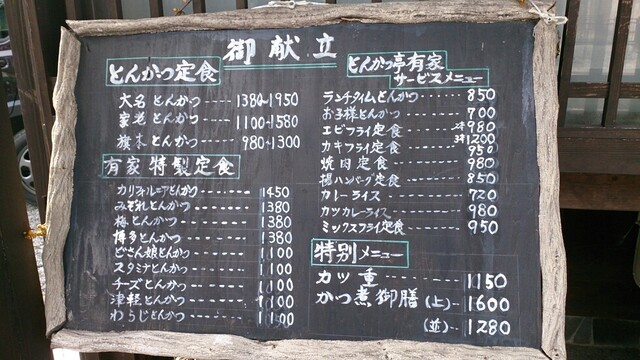 御献立
とんかつ定食
大名とんかつ----1380~1950
家老とんかつ----1100~1580
旗本とんかつ----980~1300
有家 特製定食
カリフォルニアとんかつ-------1450
みぞれとんかつ---------1380
梅とんかつ-----------1380
博多とんかつ----------1380
どさん娘とんかつ--------1100
スタミナとんかつ--------1100
チーズとんかつ---------1100
津軽とんかつ----------1100
わらじとんかつ---------1100
とんかつ亭有家
サービスメニュー
ランチタイムとんかつ------850
お子様とんかつ---------700
エビフライ定食-----2本980
3本1200
カキフライ定食---------950
焼肉定食------------980
揚ハンバーグ定食--------850
カレーライス----------720
カツカレーライス--------980
ミックスフライ定食-------950
特別メニュー
カツ重-------------1150
かつ煮御膳(上)--1600
(並)--1280